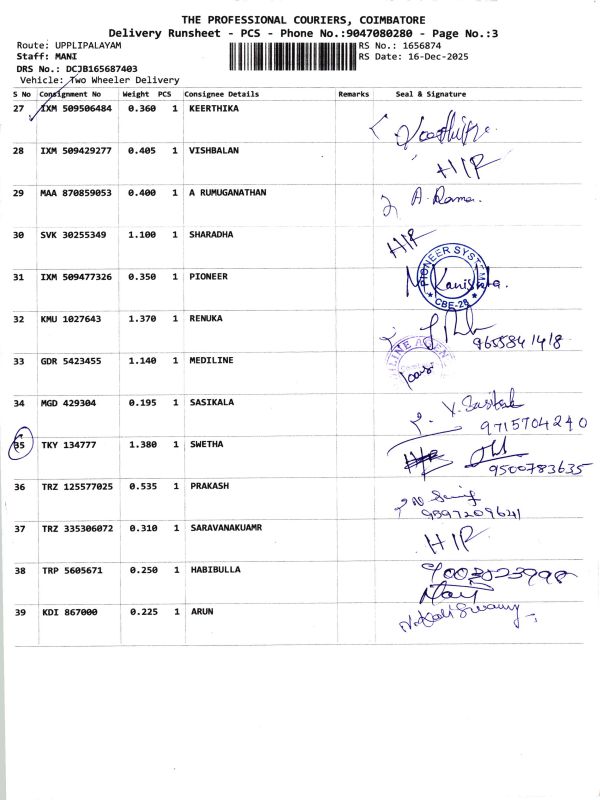 THE PROFESSIONAL COURIERS, COIMBATORE
Delivery Runsheet - PCS - Phone No.:9047080280 - Page No.:3
Route: UPPLIPALAYAM RS No.: 1656874
Staff: MANI RS Date: 16-Dec-2025
DRS No.: DCJB165687403
Vehicle: Two Wheeler Delivery
S No Consignment No Weight PCS Consignee Details Remarks Seal & Signature
27 IXM 509506484 0.360 1 KEERTHIKA
28 IXM 509429277 0.405 1 VISHBALAN H/R
29 MAA 870859053 0.400 1 A RUMUGANATHAN A. Rama.
30 SVK 30255349 1.100 1 SHARADHA H/R
31 IXM 509477326 0.350 1 PIONEER PIONEER SYSTEM CBE-28
32 KMU 1027643 1.370 1 RENUKA 9655841418
33 GDR 5423455 1.140 1 MEDILINE
34 MGD 429304 0.195 1 SASIKALA 9715704240
35 TKY 134777 1.380 1 SWETHA 9500783635
36 TRZ 125577025 0.535 1 PRAKASH
37 TRZ 335306072 0.310 1 SARAVANAKUAMR H/R
38 TRP 5605671 0.250 1 HABIBULLA
39 KDI 867000 0.225 1 ARUN